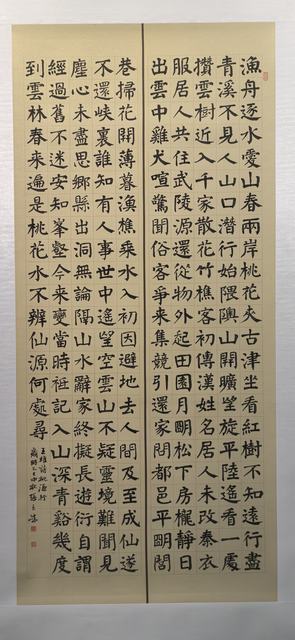 漁舟逐水愛山春兩岸桃花夾古津坐看紅樹不知遠行盡
青溪不見人山口潛行始隈隩山開曠望旋平陸遙看一處
攢雲樹近入千家散花竹樵客初傳漢姓名居人未改秦衣
服居人共住武陵源還從物外起田園月朙松下房櫳靜日
出雲中雞犬喧驚聞俗客爭来集競引還家問都邑平朙閭
巷掃花開薄暮漁樵乗水入初因避地去人間及至成仙遂
不還峽裏誰知有人事世中遙望空雲山不疑靈境難聞見
塵心未盡思鄉縣出洞無論隔山水辭家終擬長遊衍自謂
經過舊不迷安知峯壑今来變當時祗記入山深青谿幾度
到雲林春来遍是桃花水不辨仙源何處尋
王維詩桃源行